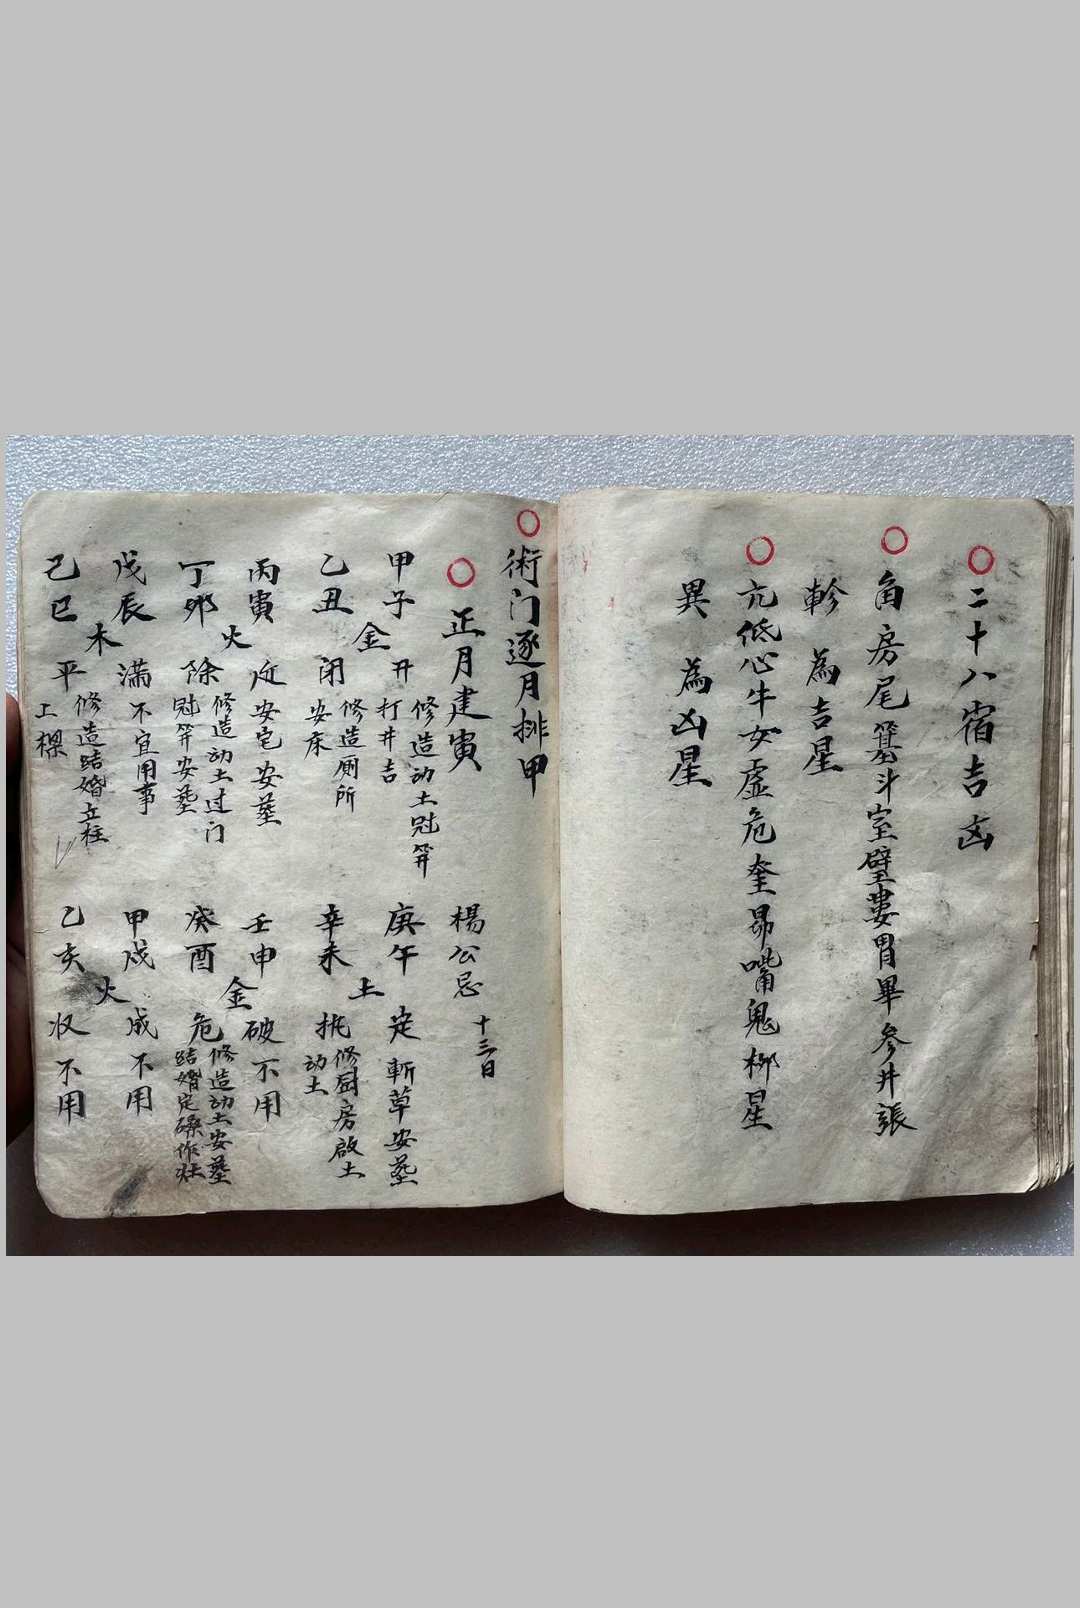 ○二十八宿吉凶
○角房尾箕斗室壁婁胃畢参井張
軫為吉星
○亢低心牛女虚危奎昴嘴鬼柳星
異為凶星
○術门逐月排甲
○正月建寅 楊公忌十三日
甲子 开 修造动土冠笄
打井吉
金
乙丑 闭 修造厕所
安床
丙寅 建 安宅安葬
火
丁卯 除 修造动土过门
冠笄安葬
戊辰 满 不宜用事
木
己巳 平 修造结婚立柱
上樑
庚午 定 斬草安葬
土
辛未 执 修厨房啟土
动土
壬申 破 不用
金
癸酉 危 修造动土安葬
結婚定磉作灶
甲戌 成 不用
火
乙亥 収 不用